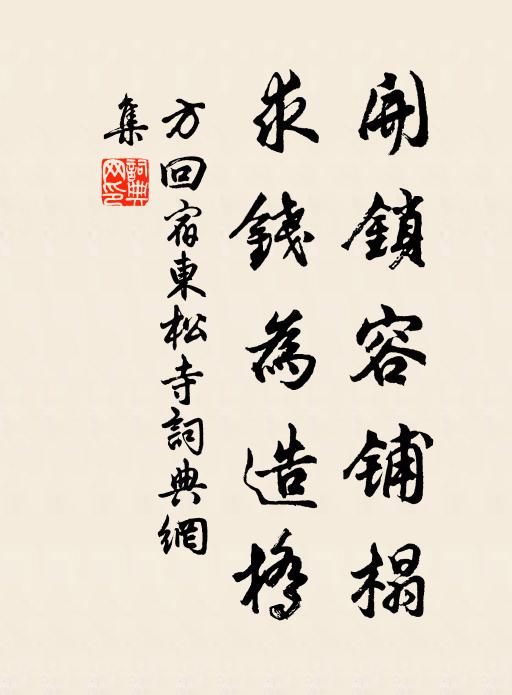 開鎖容鋪榻
求錢為造橋
方回宿東松寺詞典網
集
詞典網印